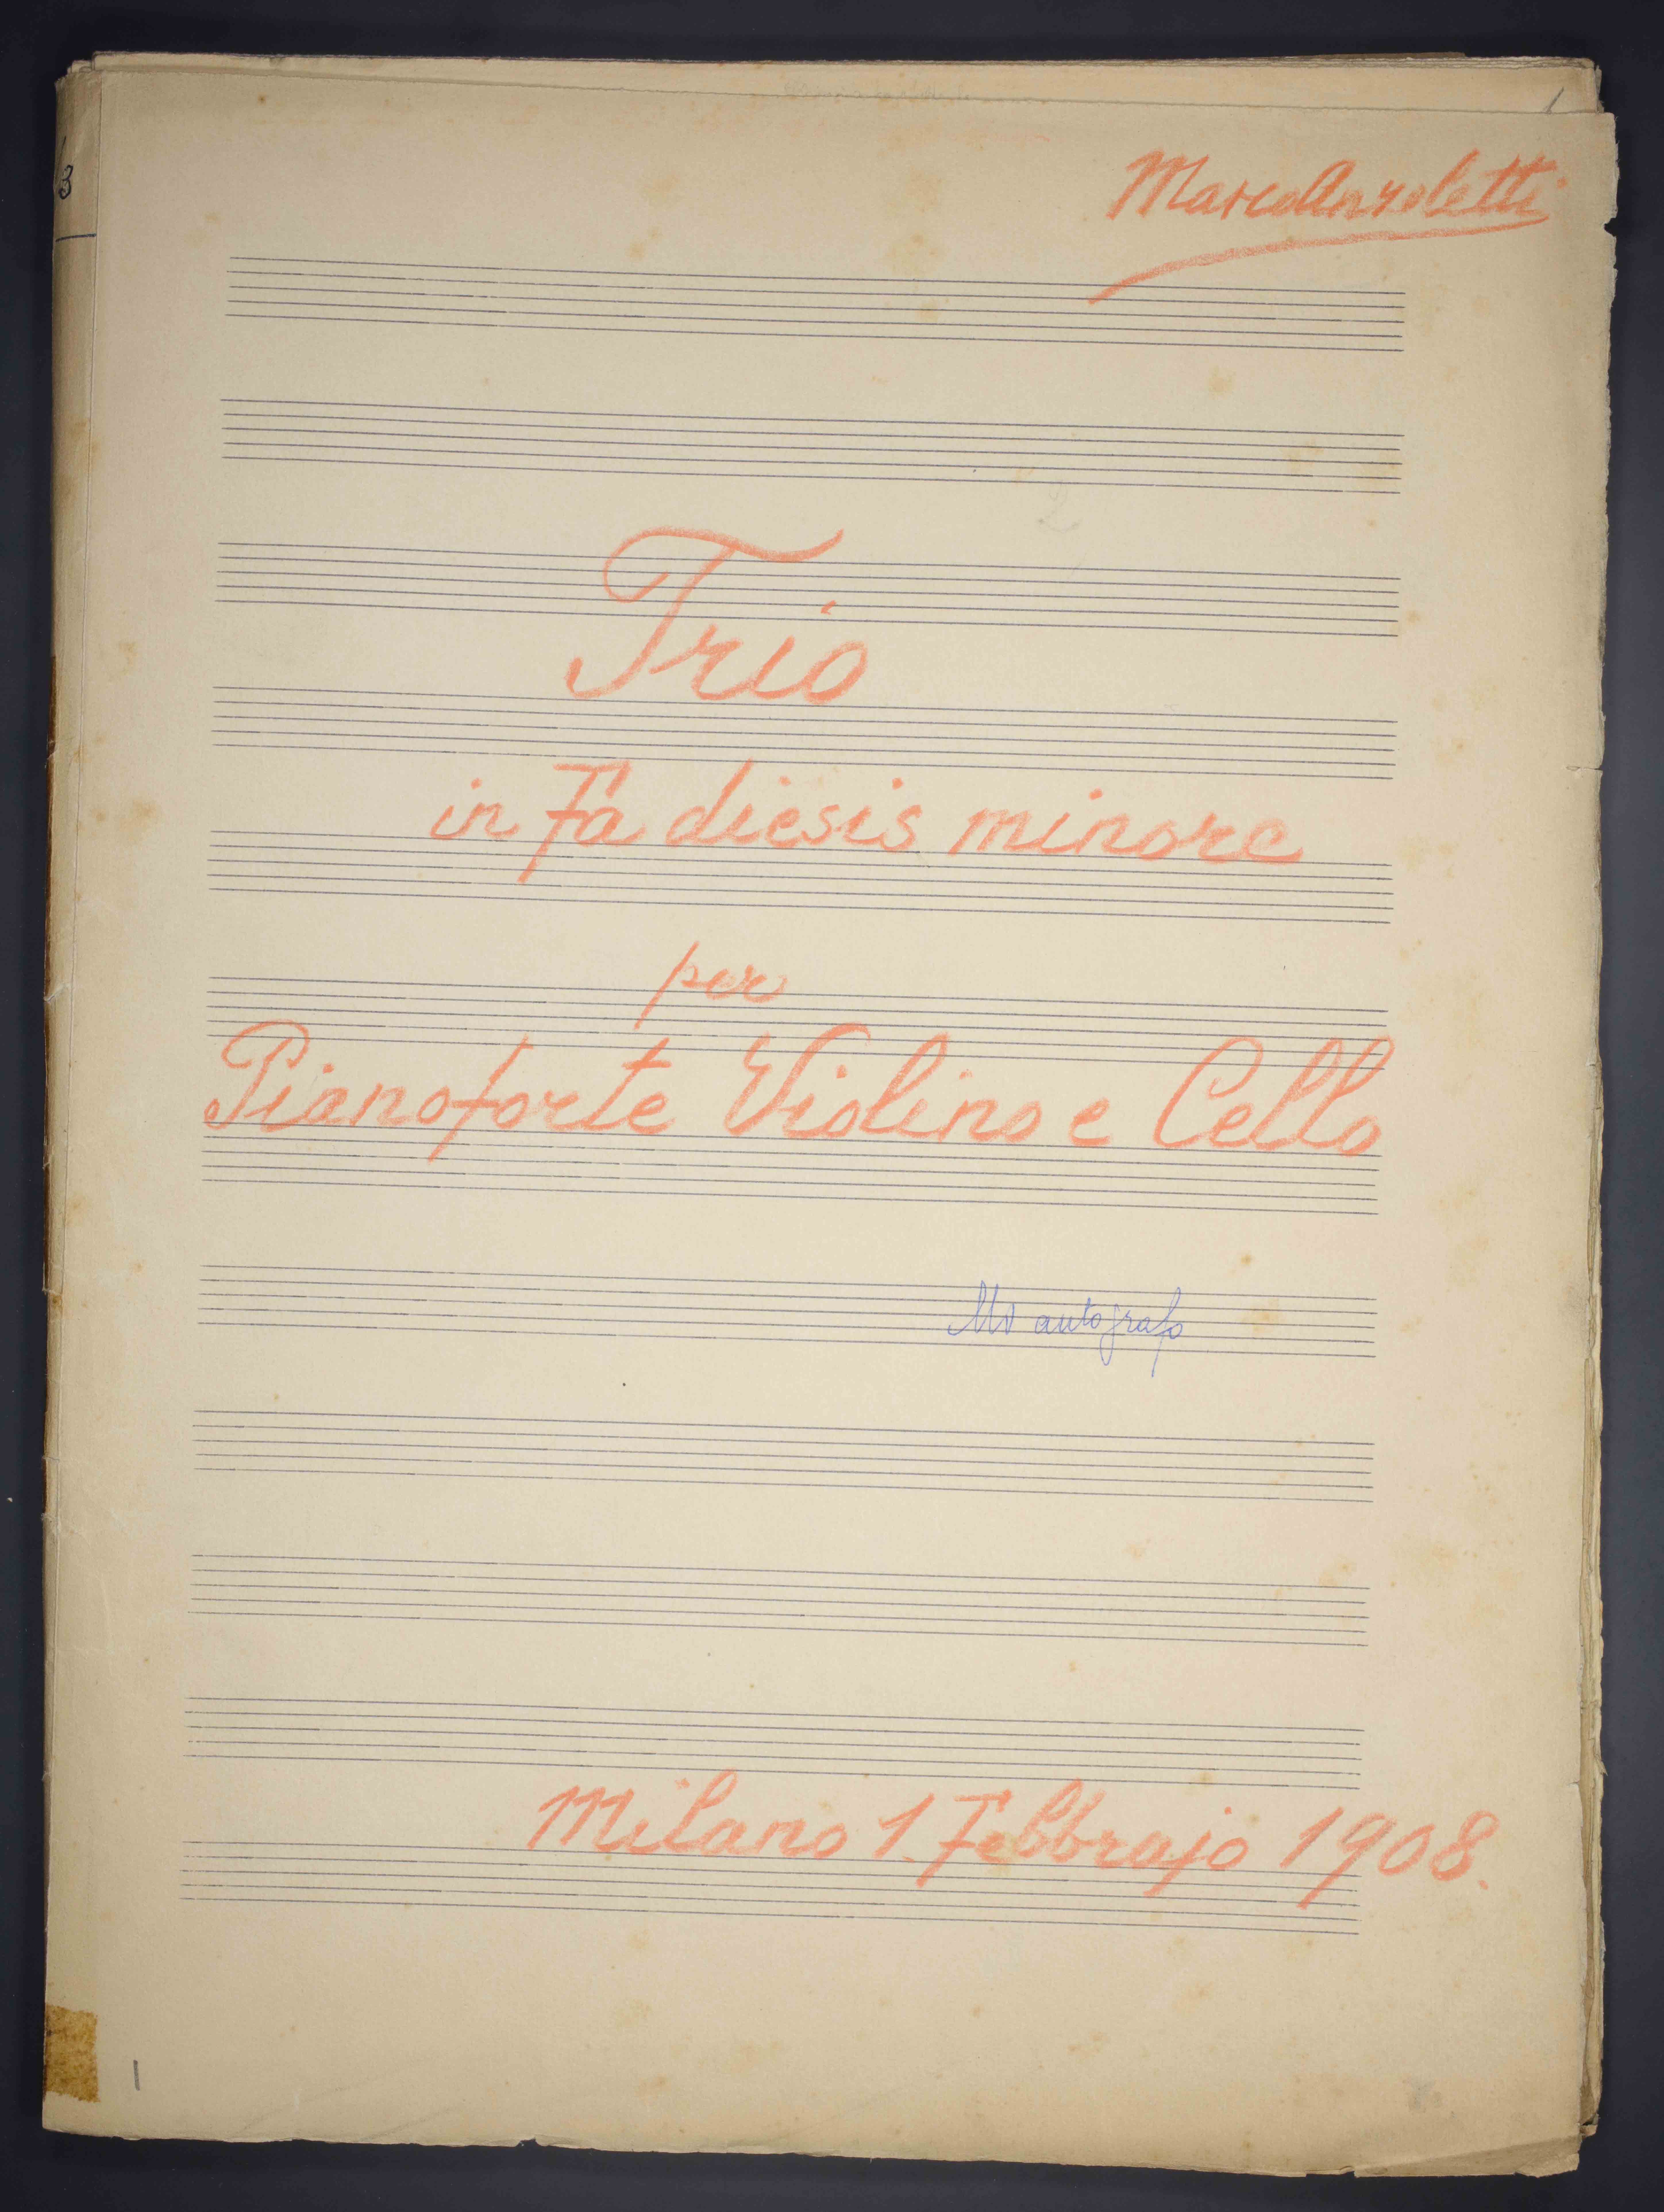 1
3
Marco Anzoletti
2
Trio
in Fa diesis minore
per
Pianoforte Violino e Cello
Ms autografo
Milano 1. Febbrajo 1908.
1